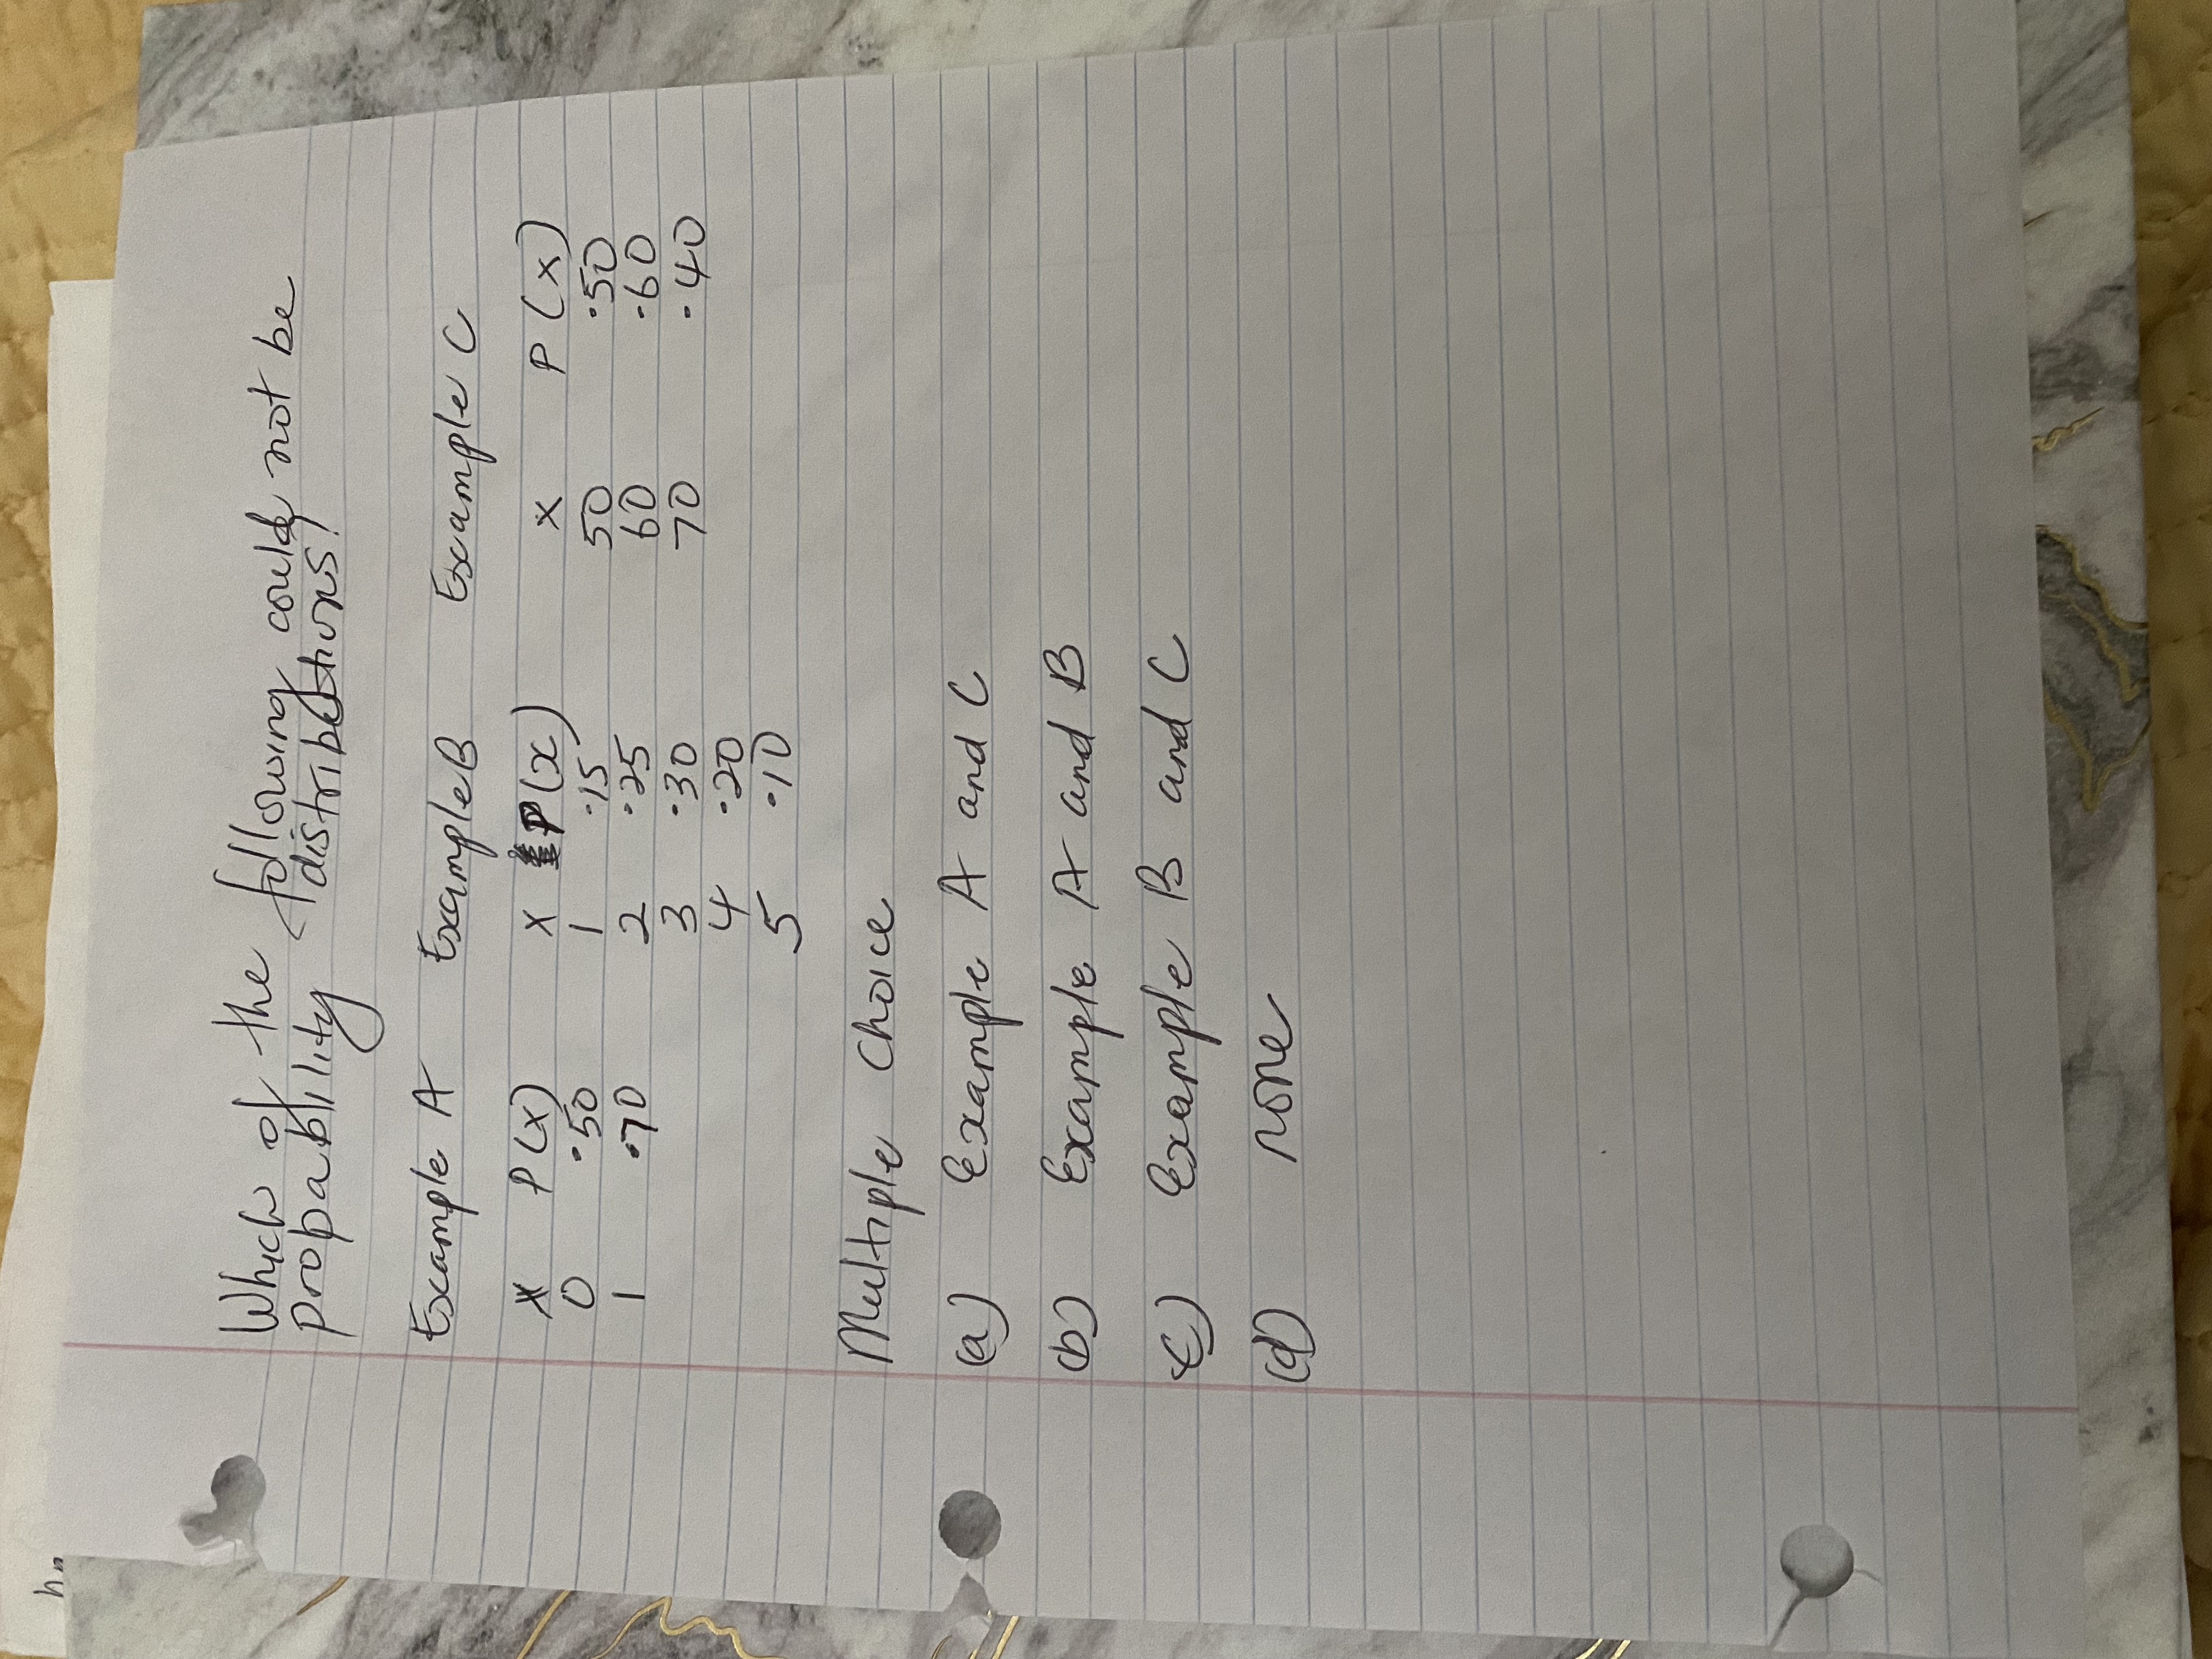 Which of the following could not be
probability distributions?
Example A Example B Example C
X P(x) X P(x) X P(x)
0 .50 1 .15 50 .50
1 .70 2 .25 60 .60
3 .30 70 .40
4 .20
5 .10
Multiple Choice
(a) Example A and C
(b) Example A and B
(c) Example B and C
(d) none